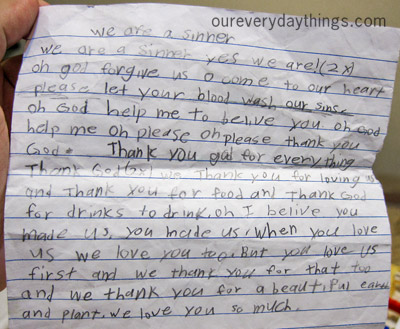 oureverydaythings.com
we are a sinner
we are a sinner yes we are!(2x)
oh god forgive us o come to our heart
please let your blood wash our sins.
oh God help me to belive you oh God
help me oh please oh please thank you
God. Thank you god for every thing
Thank God(2x) we Thank you for loving us
and Thank you for food and Thank God
for drinks to drink. oh I belive you
made us, you made us. when you love
us we love you too. But you love us
first and we thank you for that too
and we thank you for a beautiful earth
and plant. we love you so much.